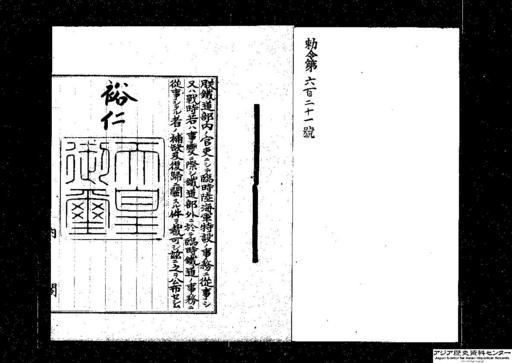 勅令第六百二十一號
朕鐵道部内ノ官吏ニシテ臨時陸海軍特設ノ事務ニ從事シ
又ハ戰時若ハ事變ノ際シ鐵道部外ニ於テ臨時鐵道ノ事務ニ
從事シタル者ノ補闕及復歸ニ關スル件ヲ裁可シ茲ニ之ヲ公布セシム
裕仁
天皇御璽
内閣
アジア歴史資料センター
Japan Center for Asian Historical Records